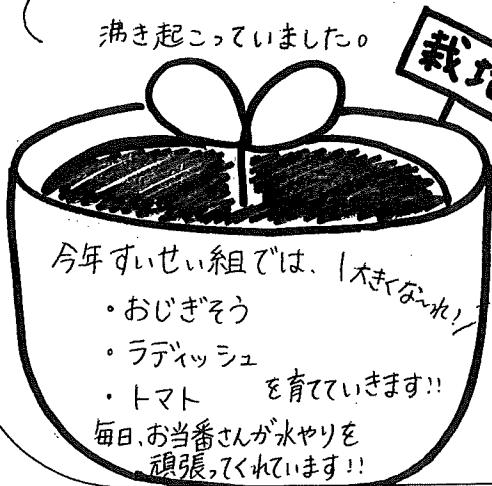 沸き起こっていました。
栽培
今年すいせい組では、
大きくな〜れ！
・おじぎそう
・ラディッシュ
・トマト
を育てていきます!!
毎日、お当番さんが水やりを
頑張ってくれています!!